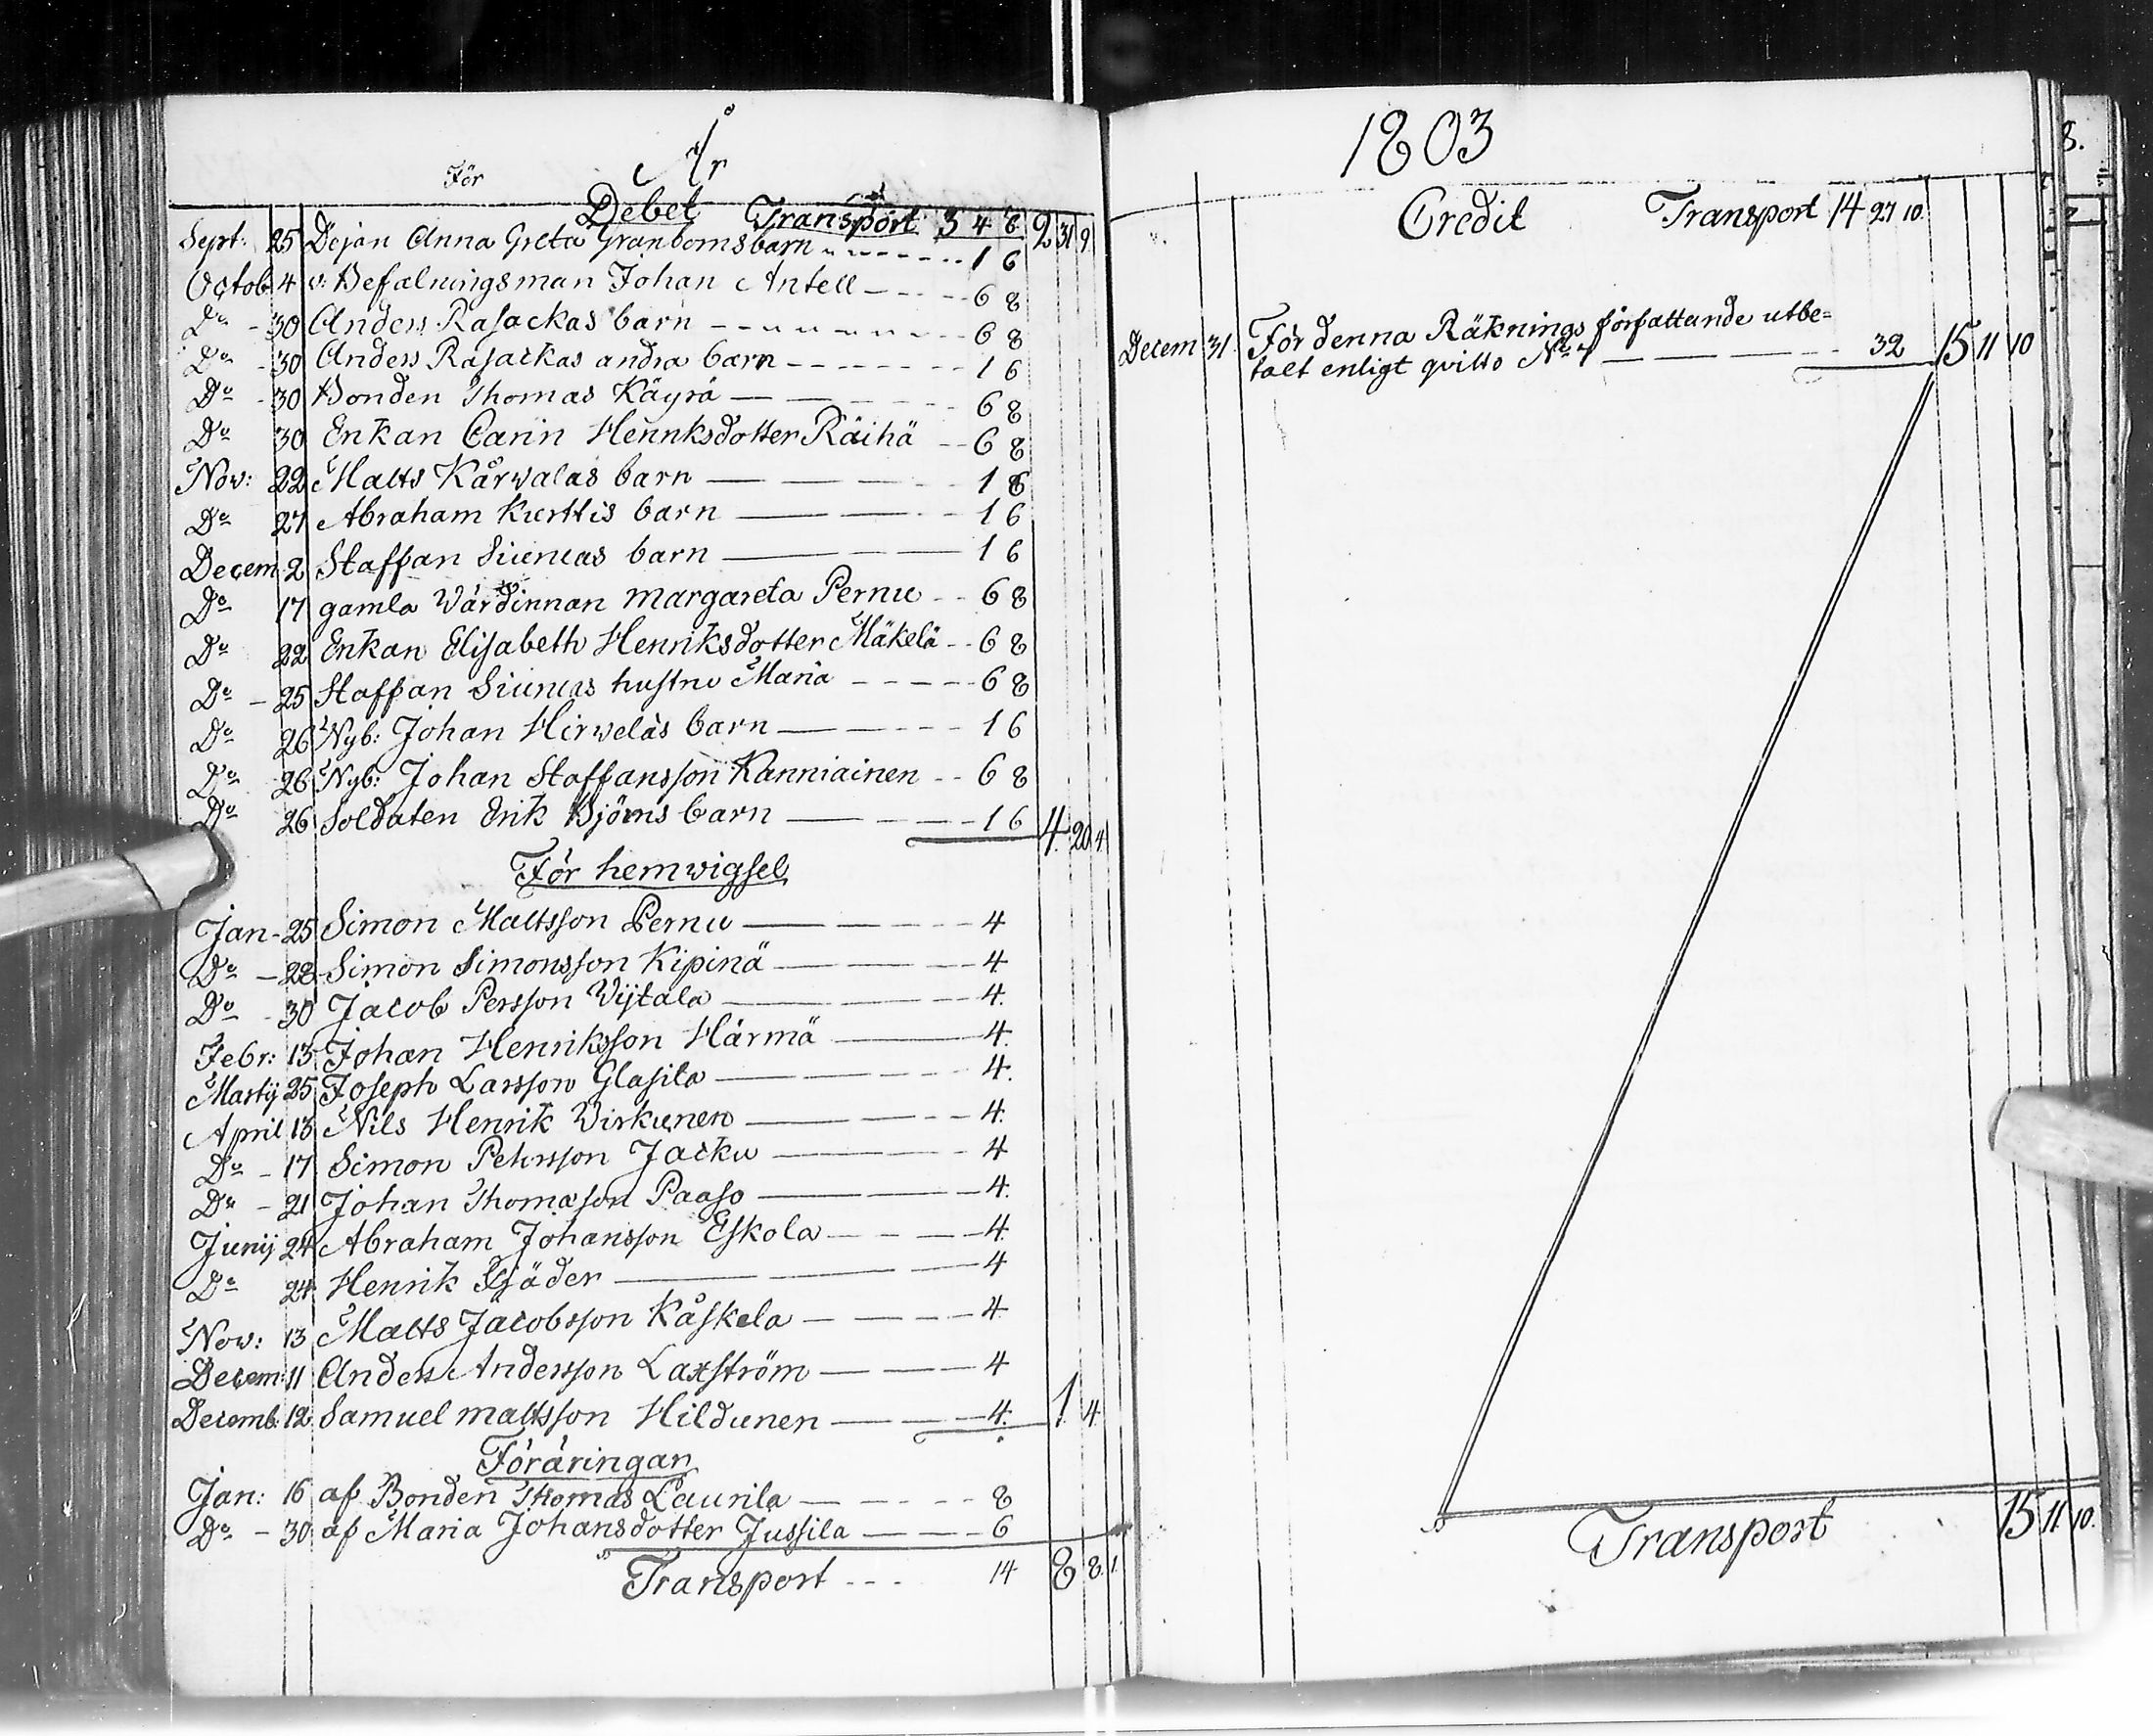 År
För
Debet Transport 3 4 8 2 31 9
Sept: 25 Dejan Anna Greta Granboms barn 1 6
Octob 4 v: Befalningsman Johan Antell 6 8
Do 30 Anders Rasackas barn 6 8
Do 30 Anders Rasackas andra barn 1 6
Do 30 Bonden Thomas Käyrä 6 8
Do 30 Enkan Carin Henriksdotter Räihä 6 8
Nov: 22 Matts Kårwalas barn 1 6
Do 27 Abraham Kurttis barn 1 6
Decem 2 Staffan Siuruas barn 1 6
Do 17 gamla Wärdinnan Margareta Pernu 6 8
Do 22 Enkan Elisabeth Henriksdotter Mäkelä 6 8
Do 25 Staffan Siuruas hustru Maria 6 8
Do 26 Nyb: Johan Hirweläs barn 1 6
Do 26 Nyb: Johan Staffansson Kanniainen 6 8
Do 26 Soldaten Erik Björns barn 1 6 4 20 4
För hemwigsel
Jan 25 Simon Mattsson Pernu 4
Do 28 Simon Simonsson Kipinä 4
Do 30 Jacob Persson Wijtala 4.
Febr: 13 Johan Henriksson Härmä 4.
Martij 25 Joseph Larsson Glasila 4.
April 13 Nils Henrik Virkunen 4.
Do 17 Simon Pehrsson Jacku 4
Do 21 Johan Thomasson Paaso 4.
Junij 24 Abraham Johansson Eskola 4.
Do 24 Henrik Fjäder 4
Nov: 13 Matts Jacobsson Kåskela 4
Decem: 11 Anders Andersson Laxström 4
Decemb: 12 Samuel mattsson Hildunen 4. 1 4
Föräringar
Jan: 16 af Bonden Thomas Laurila 8
Do 30 af Maria Johansdotter Jussila 6
Transport 14 8 8 1
1803
Credit Transport 14 27 10.
Decem 31 För denna Räknings författande utbe=
talt enligt qvitto No 7 32 15 11 10
Transport 15 11 10.